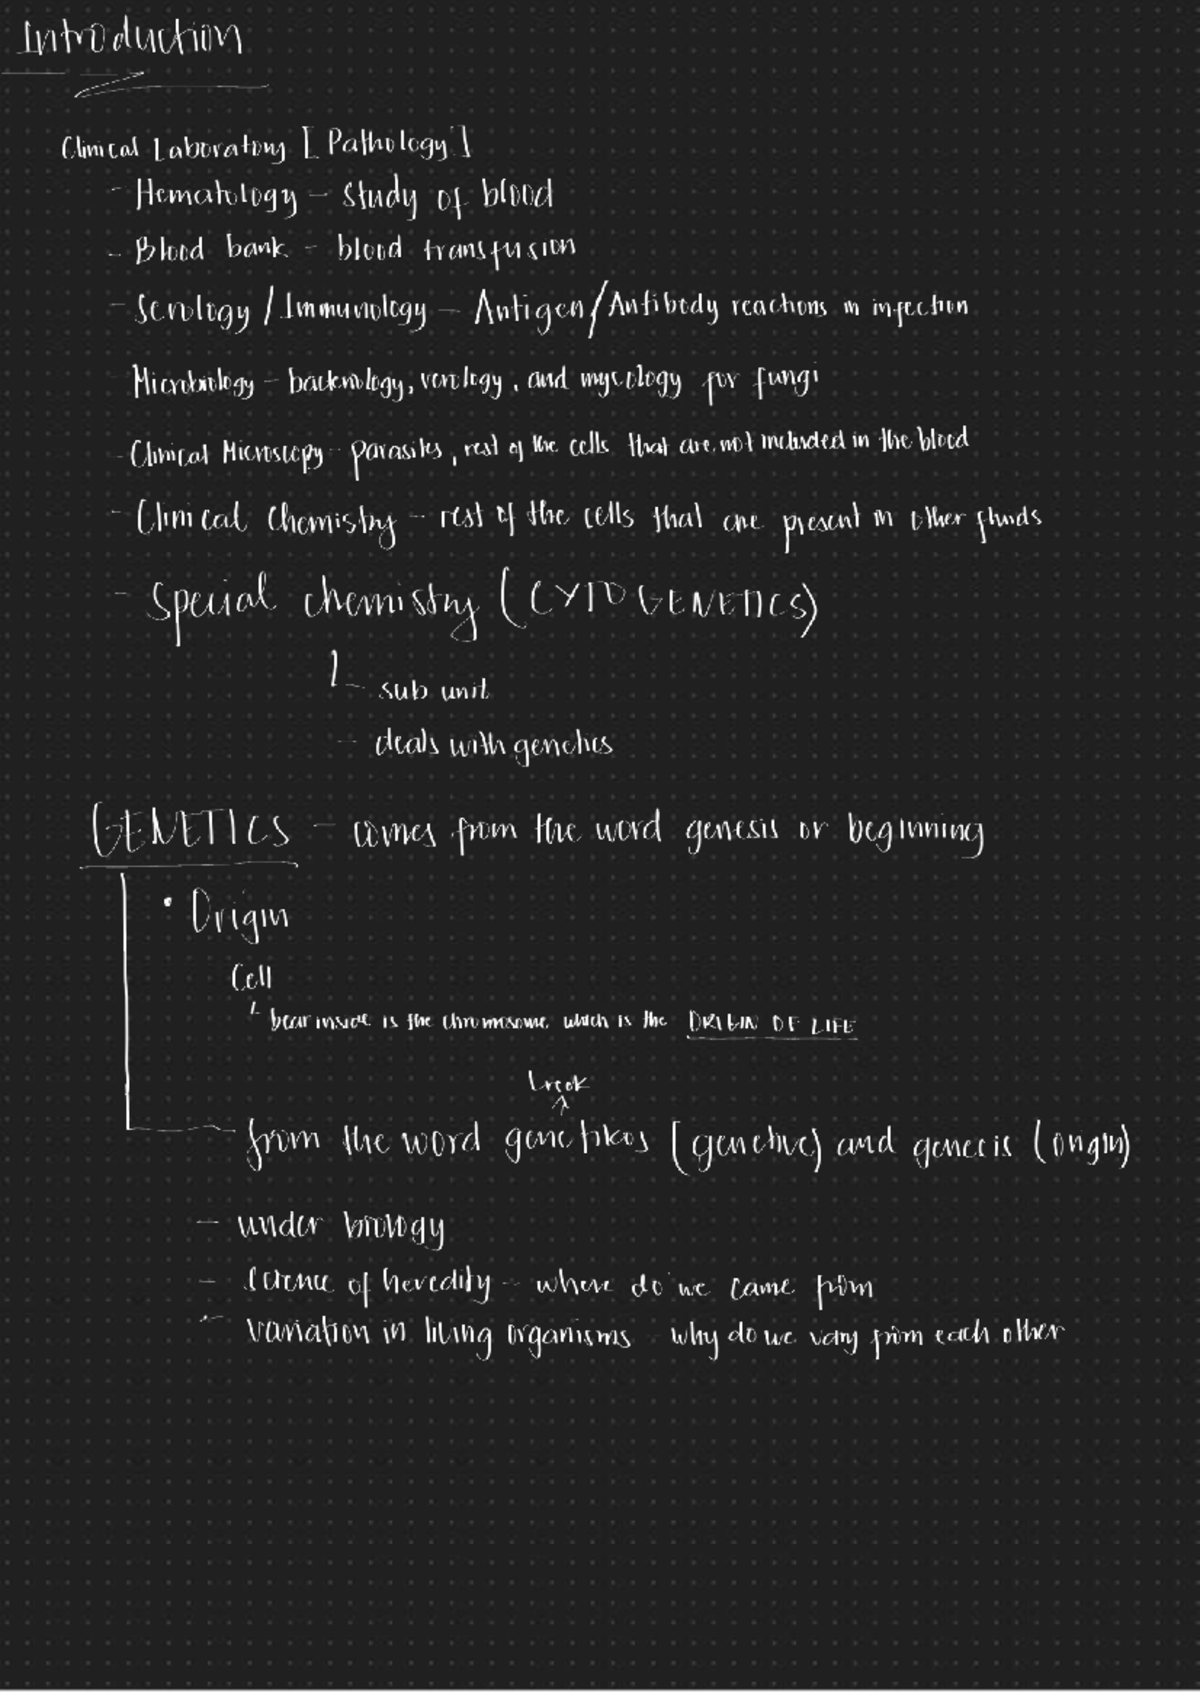 Introduction
Clinical Laboratory [Pathology]
- Hematology - study of blood
- Blood bank - blood transfusion
- Serology / Immunology - Antigen/Antibody reactions in infection
Microbiology - bacteriology, virology, and mycology for fungi
- Clinical Microscopy - parasites, rest of the cells that are not included in the blood
- Clinical Chemistry - rest of the cells that are present in other fluids
- Special chemistry (CYTOGENETICS)
sub unit
- deals with genetics
GENETICS - comes from the word genesis or beginning
• Origin
Cell
bear inside is the chromosome, which is the ORIGIN OF LIFE
from the word genetikos (genetive) and genesis (origin)
- under biology
- science of heredity - where do we came from
- variation in living organisms - why do we vary from each other